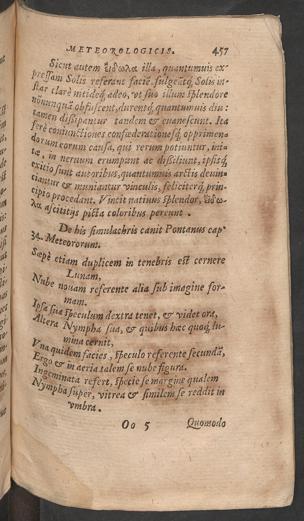 METEOROLOGICIS. 457
Sicut autem εἴδωλα illa, quantumuis ex-
pressam Solis referant faciē, fulgeātq; Solis in-
star clarè nitideq́; adeo, vt suo illum splendore
nōnunquā obfuscent, durentq́; quantumuis diu:
tamen dissipantur tandem & euanescunt. Ita
ferè coniunctiones confœderationesq́; opprimen-
dorum eorum causa, qui rerum potiuntur, ini-
tæ, in neruum erumpunt ac dissiliunt, ipsisq́;
exitio sunt autoribus, quantumuis arctis deuin-
ciantur & muniantur vinculis, feliciterq́; prin-
cipio procedant. Vincit natiuus splendor, εἴδω-
λα ascititijs picta coloribus pereunt.
De his simulachris canit Pontanus cap.
34. Meteororum.
Sæpè etiam duplicem in tenebris est cernere
Lunam,
Nube nouam referente alia sub imagine for-
mam.
Ipsa sua speculum dextra tenet, & videt ora,
Altera Nympha sua, & quibus hæc quoq́; lu-
mina cernit,
Vna quidem facies, speculo referente secundā,
Ergo & in aeria talem se nube figura.
Ingeminata refert, specie se margine qualem
Nympha super, vitrea & similem se reddit in
vmbra.
Oo 5 Quomodo